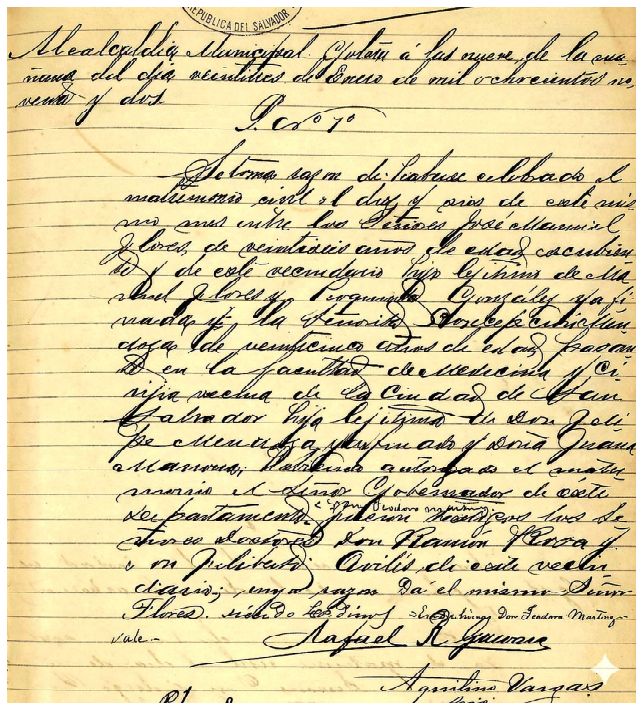 REPUBLICA DEL SALVADOR
Alcaldia Municipal: á las nueve de la ma-
ñana del dia veintitres de Enero de mil ochocientos no-
venta y dos.
P. no 1o
Se toma razon de haberse celebrado el
matrimonio civil el diez y seis de este mis
mo mes entre los Señores José Manuel
Flores, de veintiseis años de edad, escribien
te y de este vecindario hijo lejitimo de Ma
nuel Flores y González ya fi
nada y la Señorita Men
doza de veinticinco años de edad,
en la facultad de Medicina y Ci
rujia vecina de la Ciudad de San
Salvador hija lejitima de Don Feli
pe Mendoza ya finado y Doña Juana
habiendo autorizado el matri
monio el Señor Gobernador de este
Departamento, fueron testigos los Se
ñores Doctores Don Ramón y
on Filiberto Avilés de este vecin
dario; cuya razon da el mismo Señor
Flores. Don Teodoro Martinez-
vale.-
Rafael R.
Aquilino Vargas
Srio.